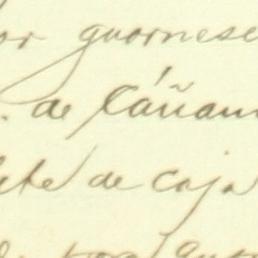 or guarnese
. de Cáñam
ete de caja